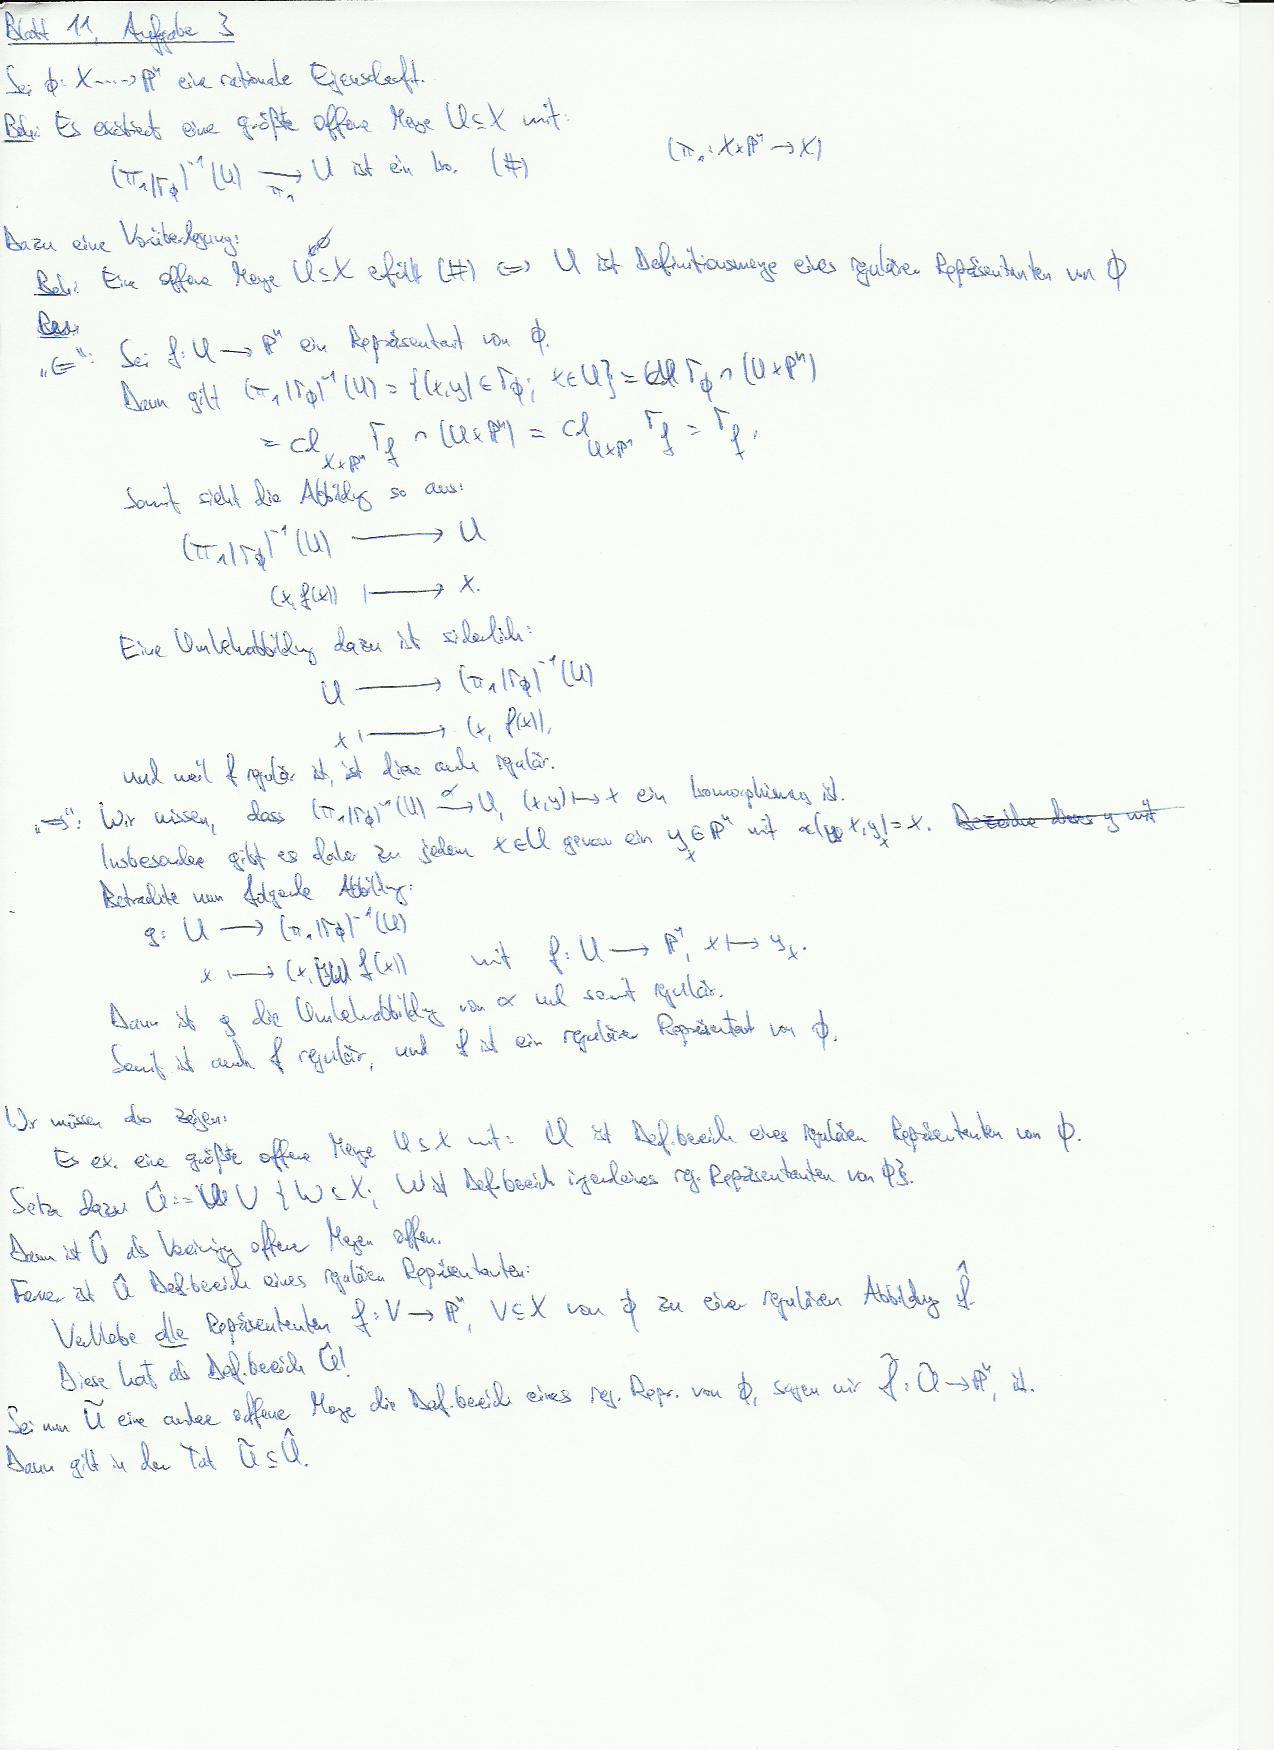 Blatt 11, Aufgabe 3
Sei ϕ: X ⇢ ℙⁿ eine rationale Eigenschaft.
Beh: Es existiert eine größte offene Menge U⊆X mit:
(π₁|Γϕ)⁻¹(U) →π₁ U ist ein Iso. (#) (π₁: X×ℙⁿ → X)
Dazu eine Vorüberlegung:
Beh: Eine offene Menge U⊆X erfüllt (#) ⇔ U ist Definitionsmenge eines regulären Repräsentanten von ϕ
≠∅
Bew:
„⇐": Sei f: U → ℙⁿ ein Repräsentant von ϕ.
Dann gilt (π₁|Γϕ)⁻¹(U) = {(x,y) ∈ Γϕ; x∈U} = Γϕ ∩ (U×ℙⁿ)
= cl_{X×ℙⁿ} Γ_f ∩ (U×ℙⁿ) = cl_{U×ℙⁿ} Γ_f = Γ_f,
Somit sieht die Abbildung so aus:
(π₁|Γϕ)⁻¹(U) ⟶ U
(x, f(x)) ⟼ x.
Eine Umkehrabbildung dazu ist sicherlich:
U ⟶ (π₁|Γϕ)⁻¹(U)
x ⟼ (x, f(x)),
und weil f regulär ist, ist diese auch regulär.
„⇒": Wir wissen, dass (π₁|Γϕ)⁻¹(U) →α U, (x,y) ↦ x ein Isomorphismus ist.
Insbesondere gibt es daher zu jedem x∈U genau ein y_x ∈ ℙⁿ mit α(x, y_x) = x. Bezeichne dieses y mit
Betrachte nun folgende Abbildung:
g: U ⟶ (π₁|Γϕ)⁻¹(U)
x ⟼ (x, f(x)) mit f: U ⟶ ℙⁿ, x ⟼ y_x.
Dann ist g die Umkehrabbildung von α und somit regulär.
Somit ist auch f regulär, und f ist ein regulärer Repräsentant von ϕ.
Wir müssen also zeigen:
Es ex. eine größte offene Menge U⊆X mit: U ist Def.bereich eines regulären Repräsentanten von ϕ.
Setze dazu Û := ⋃ {W⊆X; W ist Def.bereich irgendeines reg. Repräsentanten von ϕ}.
Dann ist Û als Vereinigung offener Mengen offen.
Ferner ist Û Def.bereich eines regulären Repräsentanten:
Verklebe alle Repräsentanten f: V → ℙⁿ, V⊆X von ϕ zu einer regulären Abbildung f̂.
Diese hat als Def.bereich Û!
Sei nun Ũ eine andere offene Menge die Def.bereich eines reg. Repr. von ϕ, sagen wir f̃: Ũ → ℙⁿ, ist.
Dann gilt in der Tat Ũ ⊆ Û.